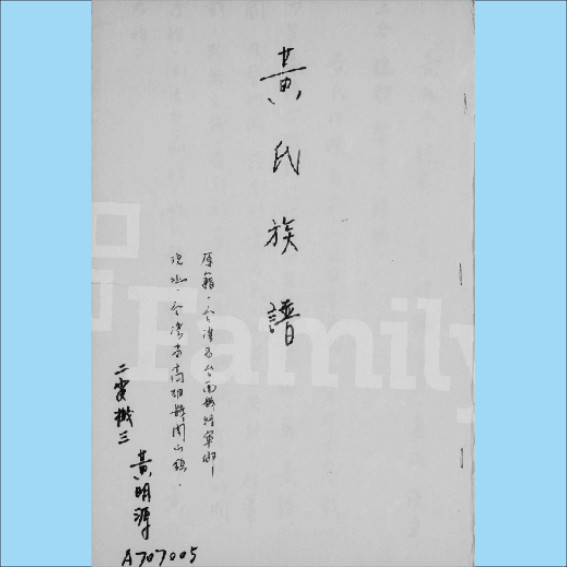 黃氏族譜
原籍．台灣省台南縣將軍鄉
現址．台灣省高雄縣岡山鎮．
二電機三
黃明源
A707005
Family